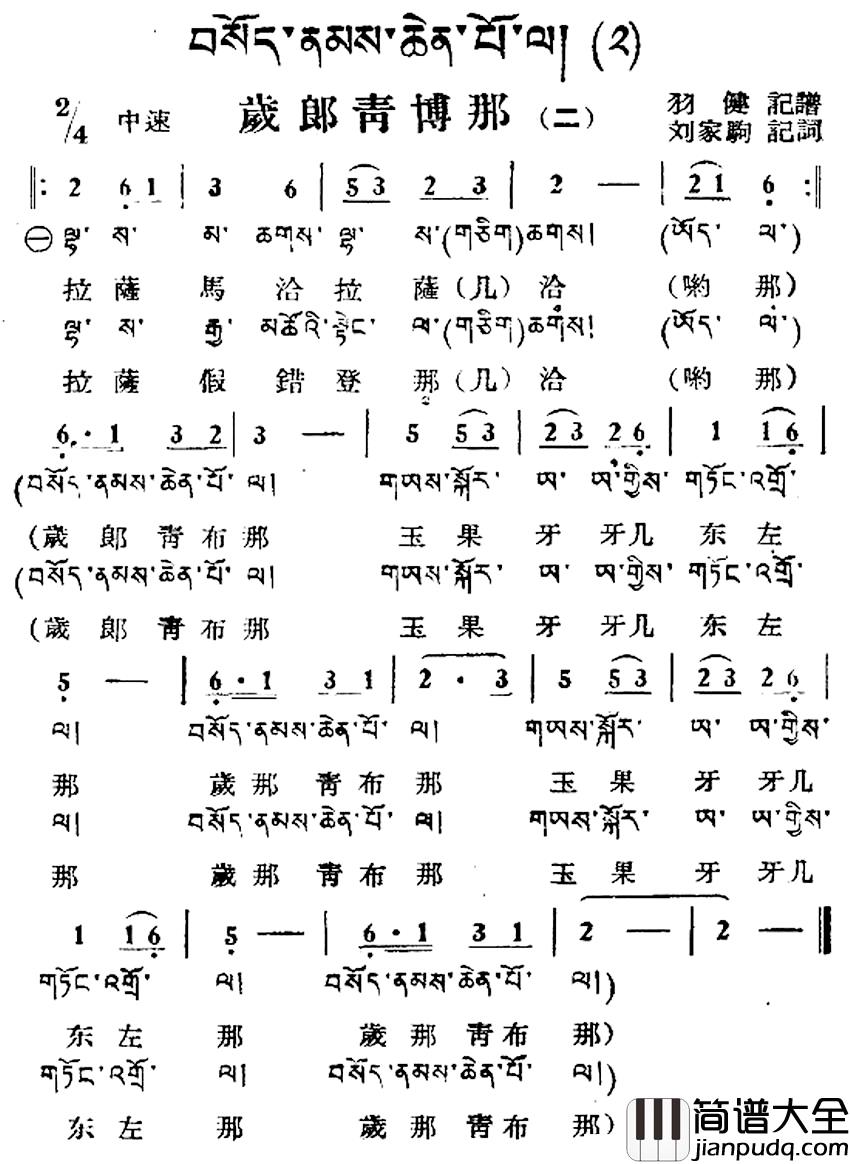 བསོད་ནམས་ཆེན་པོ་ལ། (༢)
2/4 中速 歲郎青博那 (二) 羽健 記譜
刘家駒 記詞
‖: 2 6 1 | 3 6 | 5 3 2 3 | 2 — | 2 1 6 :‖
㊀ ལྷ་ས་མ་ཆགས་ལྷ་ས་(གཅིག)ཆགས། (ཨོད་ལ་)
拉薩馬洽拉薩(几)洽 (喲那)
ལྷ་ས་རྒྱ་མཚོའི་སྟེང་ལ་(གཅིག)ཆགས། (ཨོད་ལ་)
拉薩假錯登那(几)洽 (喲那)
6 · 1 3 2 | 3 — | 5 5 3 | 2 3 2 6 | 1 1 6 |
(བསོད་ནམས་ཆེན་པོ་ལ། གཡས་སྐོར་ཨ་ཨ་གྱིས་གཏོང་འགྲོ་
(歲郎青布那 玉果牙牙几东左
(བསོད་ནམས་ཆེན་པོ་ལ། གཡས་སྐོར་ཨ་ཨ་གྱིས་གཏོང་འགྲོ་
(歲郎青布那 玉果牙牙几东左
5 — | 6 · 1 3 1 | 2 · 3 | 5 5 3 | 2 3 2 6 |
ལ། བསོད་ནམས་ཆེན་པོ་ལ། གཡས་སྐོར་ཨ་ཨ་གྱིས་
那 歲那青布那 玉果牙牙几
ལ། བསོད་ནམས་ཆེན་པོ་ལ། གཡས་སྐོར་ཨ་ཨ་གྱིས་
那 歲那青布那 玉果牙牙几
1 1 6 | 5 — | 6 · 1 3 1 | 2 — | 2 — ‖
གཏོང་འགྲོ་ ལ། བསོད་ནམས་ཆེན་པོ་ལ།)
东左那 歲那青布那)
གཏོང་འགྲོ་ ལ། བསོད་ནམས་ཆེན་པོ་ལ།)
东左那 歲那青布那)
简谱大全
jianpudq.com